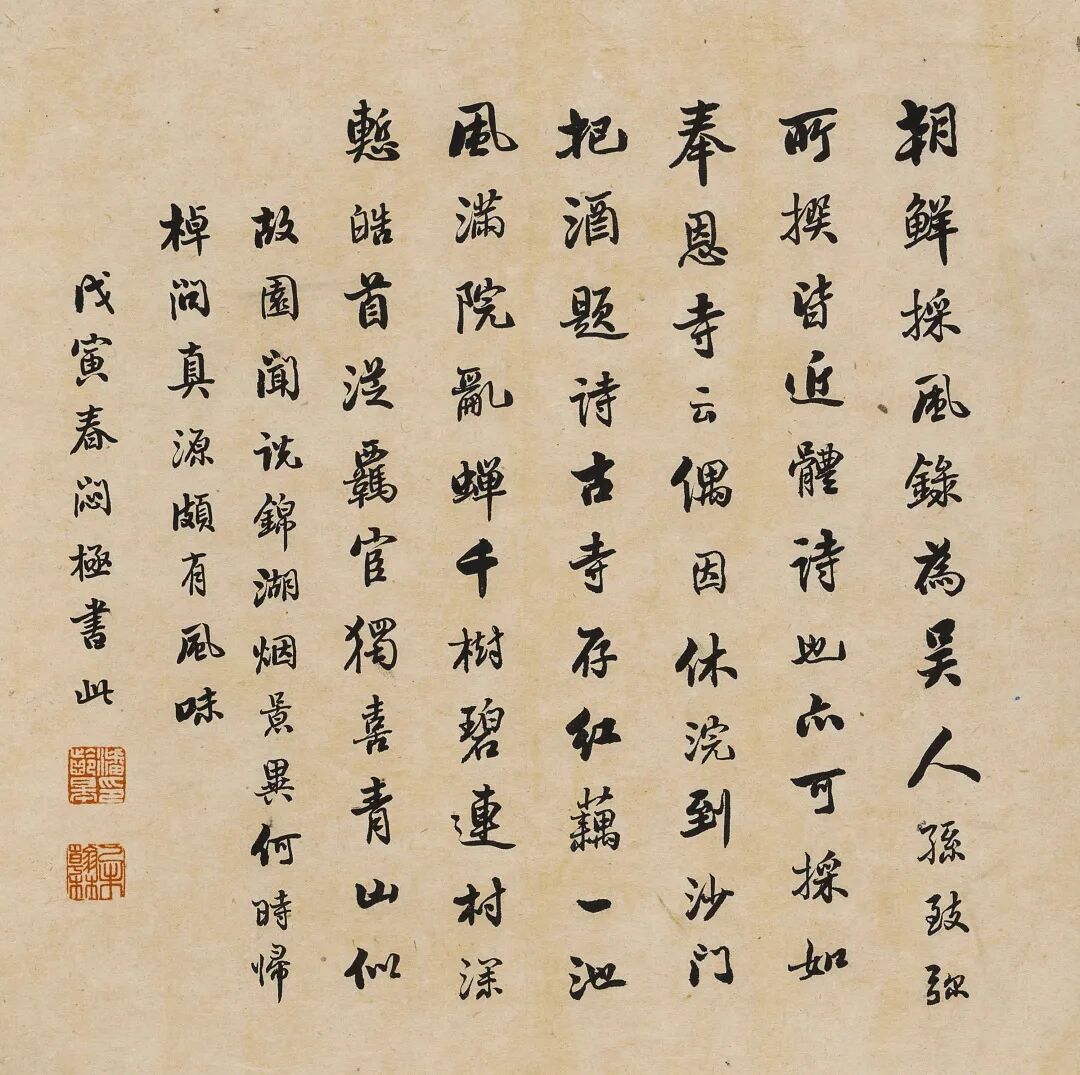 朝鮮採風錄為吳人孫致弥
所撰皆近體詩也亦可採如
奉恩寺云偶因休浣到沙门
把酒題诗古寺存红藕一池
風滿院亂蟬千樹碧連村深
慙皓首淫羈宦獨喜青山似
故園聞説錦湖烟景異何時帰
棹問真源頗有風味
戊寅春悶極書此
潘印齡皋
甲午翰林